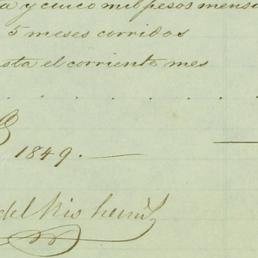 a y cinco mil pesos mensu
5 meses corridos
sta el corriente mes
1849.
del Rio